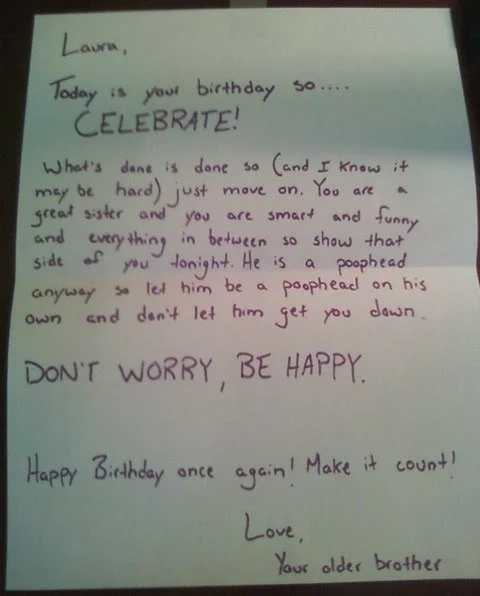 Laura,
Today is your birthday so....
CELEBRATE!
What's done is done so (and I know it
may be hard) just move on. You are a
great sister and you are smart and funny
and everything in between so show that
side of you tonight. He is a poophead
anyway so let him be a poophead on his
own and don't let him get you down.
DON'T WORRY, BE HAPPY.
Happy Birthday once again! Make it count!
Love,
Your older brother